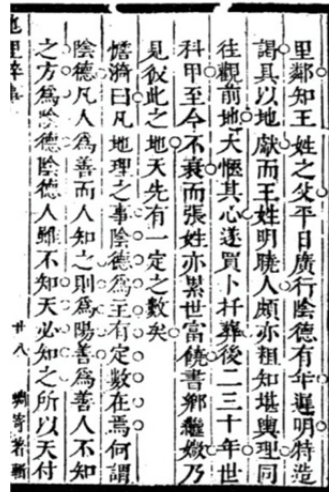 里鄰知王姓之父平日廣行陰德有年遲明特造
謁具以地獻而王姓明曉人頗亦粗知堪輿理同
往觀前地大愜其心遂買卜扦葬後二三十年世
科甲至今不衰而張姓亦累世富饒書鄉繼乃
見彼此之地天先有一定之數矣
憺漪曰凡地理之事陰德為主有定數在焉何謂
陰德凡人為善而人知之則為陽善為善人不知
之方為陰德陰德人雖不知天必知之所以天付
廿八